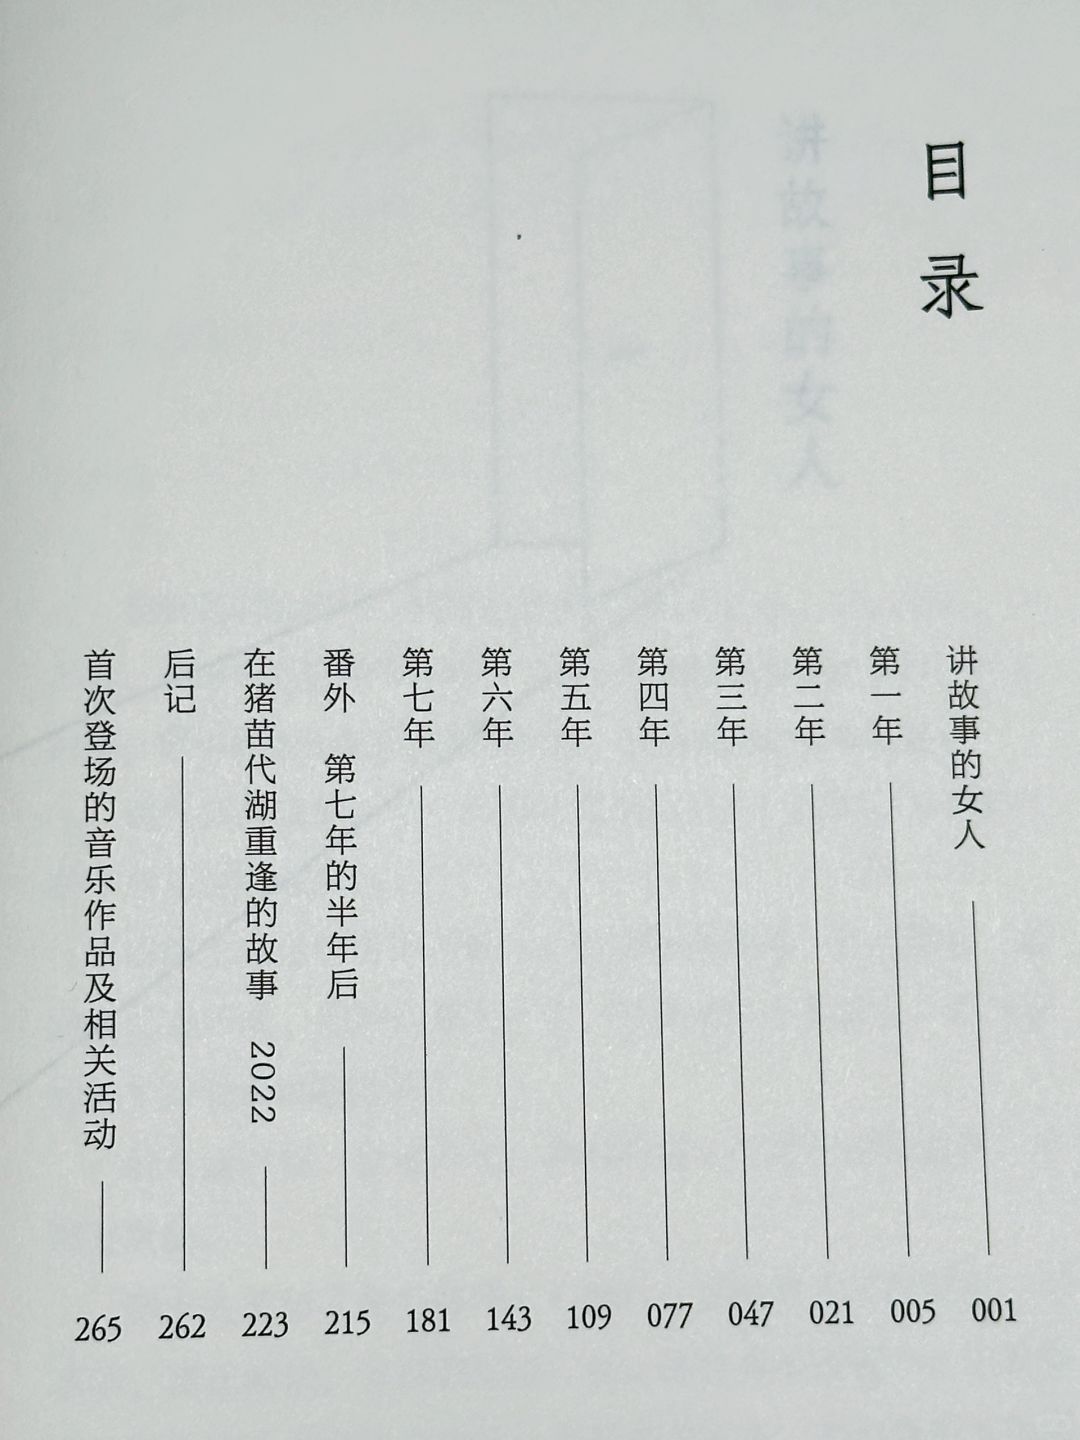 目录
讲故事的女人 001
第一年 005
第二年 021
第三年 047
第四年 077
第五年 109
第六年 143
第七年 181
番外 第七年的半年后 215
在猪苗代湖重逢的故事 2022 223
后记 262
首次登场的音乐作品及相关活动 265
讲故事的女人